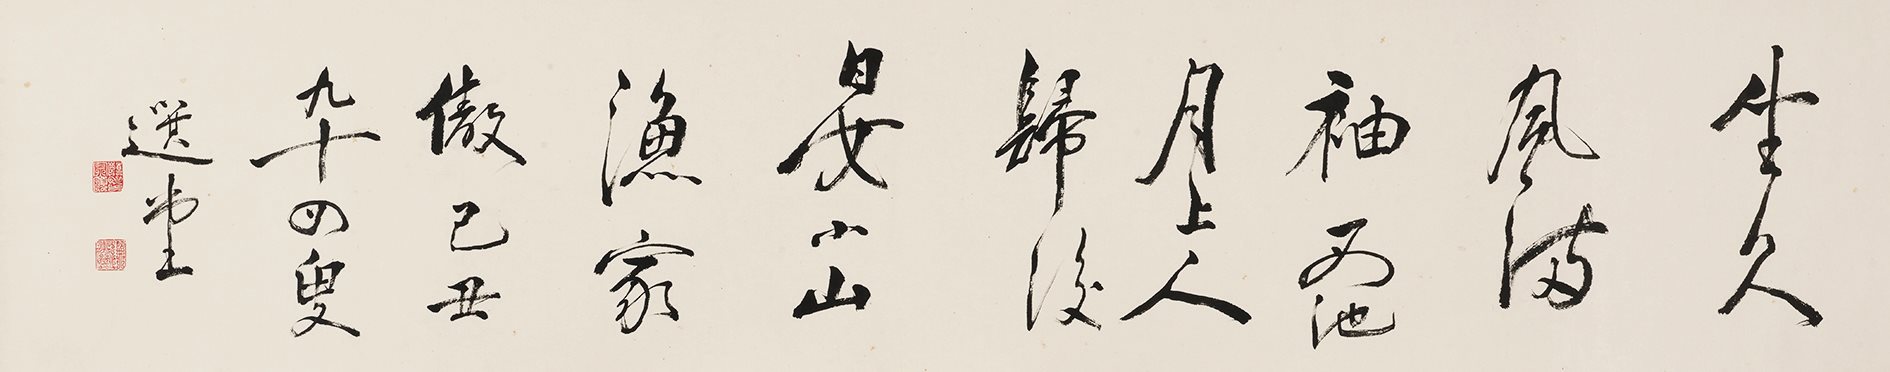 坐久
風滿
袖西池
月上人
歸後
晏小山
漁家
傲己丑
九十四叟
選堂